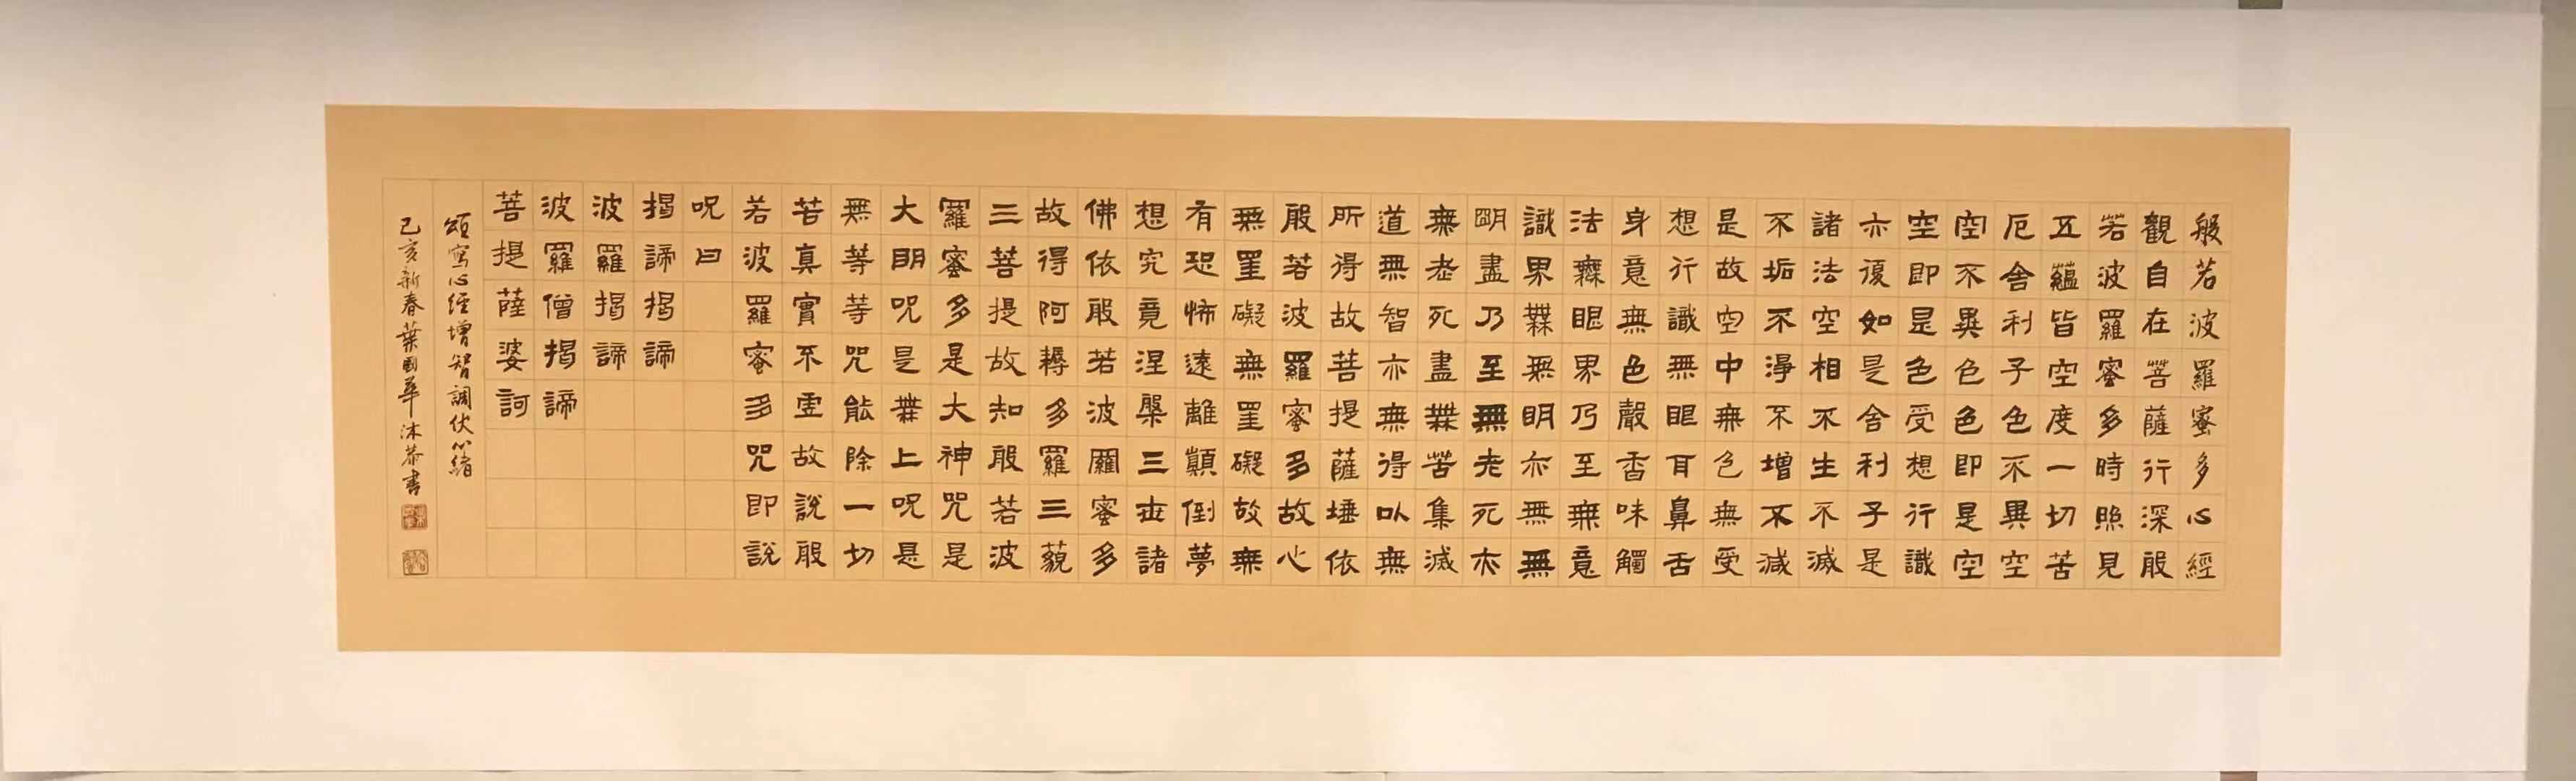 般若波羅蜜多心經
觀自在菩薩行深般
若波羅蜜多時照見
五蘊皆空度一切苦
厄舍利子色不異空
空不異色色即是空
空即是色受想行識
亦復如是舍利子是
諸法空相不生不滅
不垢不淨不增不減
是故空中無色無受
想行識無眼耳鼻舌
身意無色聲香味觸
法無眼界乃至無意
識界無無明亦無無
明盡乃至無老死亦
無老死盡無苦集滅
道無智亦無得以無
所得故菩提薩埵依
般若波羅蜜多故心
無罣礙無罣礙故無
有恐怖遠離顛倒夢
想究竟涅槃三世諸
佛依般若波羅蜜多
故得阿耨多羅三藐
三菩提故知般若波
羅蜜多是大神咒是
大明呪是無上呪是
無等等咒能除一切
苦真實不虛故說般
若波羅蜜多咒即說
呪曰
揭諦揭諦
波羅揭諦
波羅僧揭諦
菩提薩婆訶
頌寫心經增智調伏心緒
己亥新春葉國華沐恭書